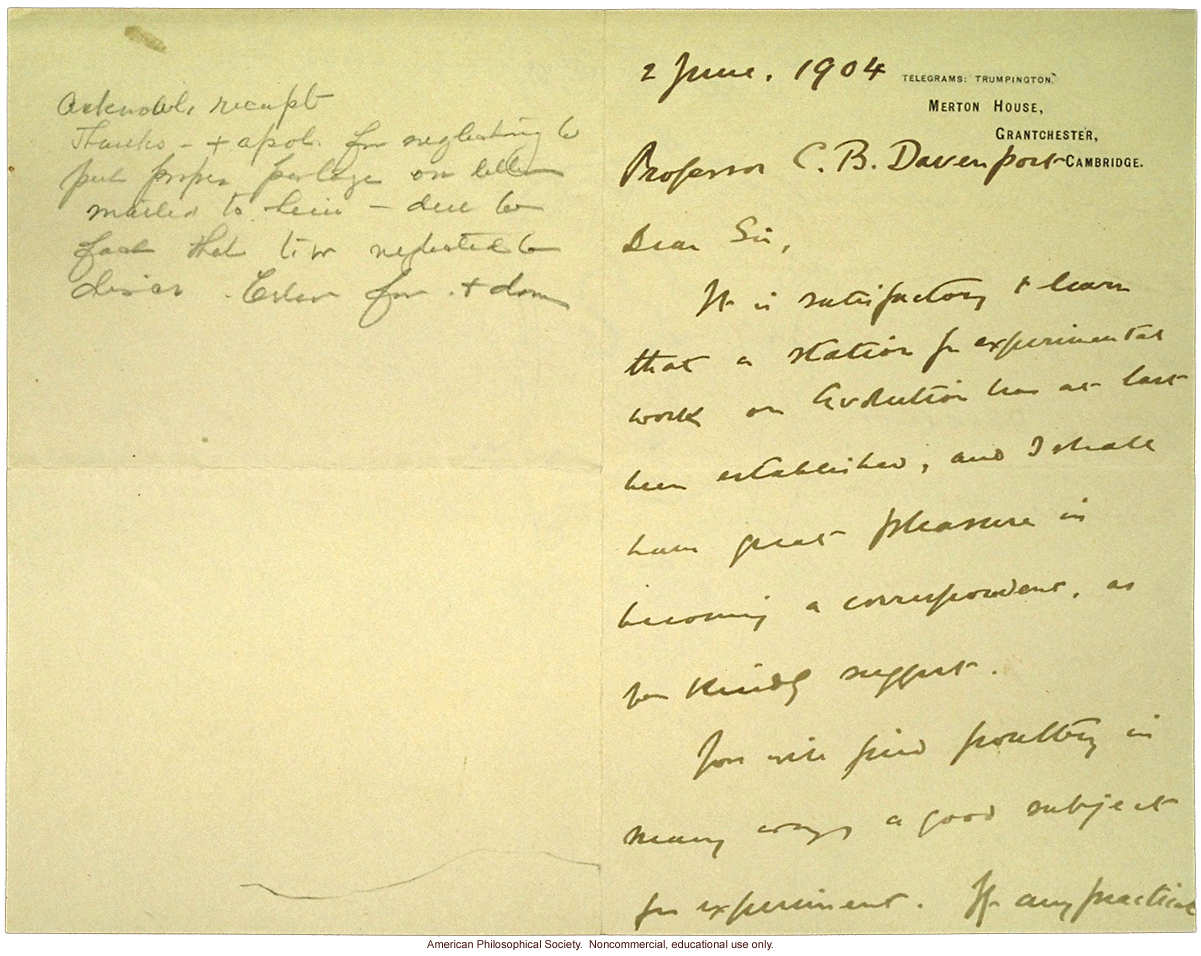 Acknowl. receipt
Thanks - + apol. for neglecting to
put proper postage on letter
mailed to him - due to
fact that
2 June. 1904
TELEGRAMS: TRUMPINGTON."
MERTON HOUSE,
GRANTCHESTER,
CAMBRIDGE.
Professor C. B. Davenport
Dear Sir,
It is satisfactory to learn
that a station for experimental
work on Evolution has at last
been established, and I shall
have great pleasure in
becoming a correspondent, as
you kindly suggest.
You will find poultry in
many ways a good subject
for experiment. If any practical
American Philosophical Society. Noncommercial, educational use only.